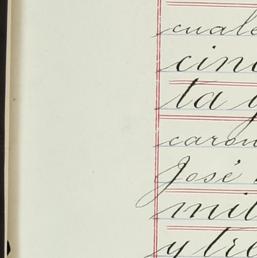 cuale
cin
ta y
caron
José
mil
y tre